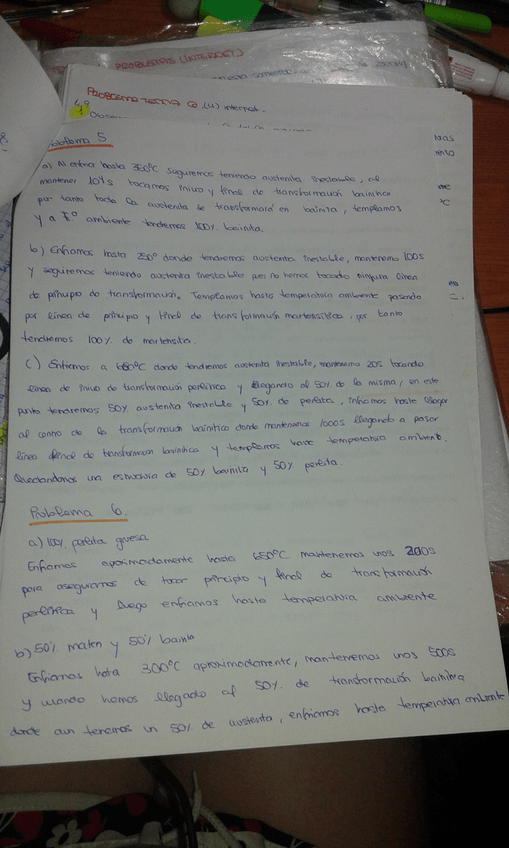 PROBLEMAS (INTERNET)
PROBLEMAS TEMA (4) internet.
Problema 5
a) Al enfriar hasta 350°C seguiremos teniendo austenita inestable, al
mantener 104s tocamos inicio y final de transformación bainítica
por tanto toda la austenita se transformará en bainita, templamos
y a Tº ambiente tendremos 100% bainita.
b) Enfriamos hasta 250° donde tendremos austenita inestable, mantenemos 100s
y seguiremos teniendo austenita inestable pues no hemos tocado ninguna línea
de principio de transformación. Templamos hasta temperatura ambiente pasando
por línea de principio y final de transformación martensítica, por tanto
tendremos 100% de martensita.
c) Enfriamos a 650°C donde tendremos austenita inestable, mantenemos 20s tocando
línea de inicio de transformación perlítica y llegando al 50% de la misma, en este
punto tendremos 50% austenita inestable y 50% de perlita, enfriamos hasta llegar
al centro de la transformación bainítica donde mantenemos 1000s llegando a pasar
línea final de transformación bainítica y templamos hasta temperatura ambiente.
Quedandonos una estructura de 50% bainita y 50% perlita.
Problema 6
a) 100% perlita gruesa
Enfriamos aproximadamente hasta 650°C mantenemos unos 200s
para asegurarnos de tocar principio y final de transformación
perlítica y luego enfriamos hasta temperatura ambiente
b) 50% marten y 50% bainita
Enfriamos hasta 300°C aproximadamente, mantenemos unos 500s
y cuando hemos llegado al 50% de transformación bainítica
donde aun tenemos un 50% de austenita, enfriamos hasta temperatura ambiente